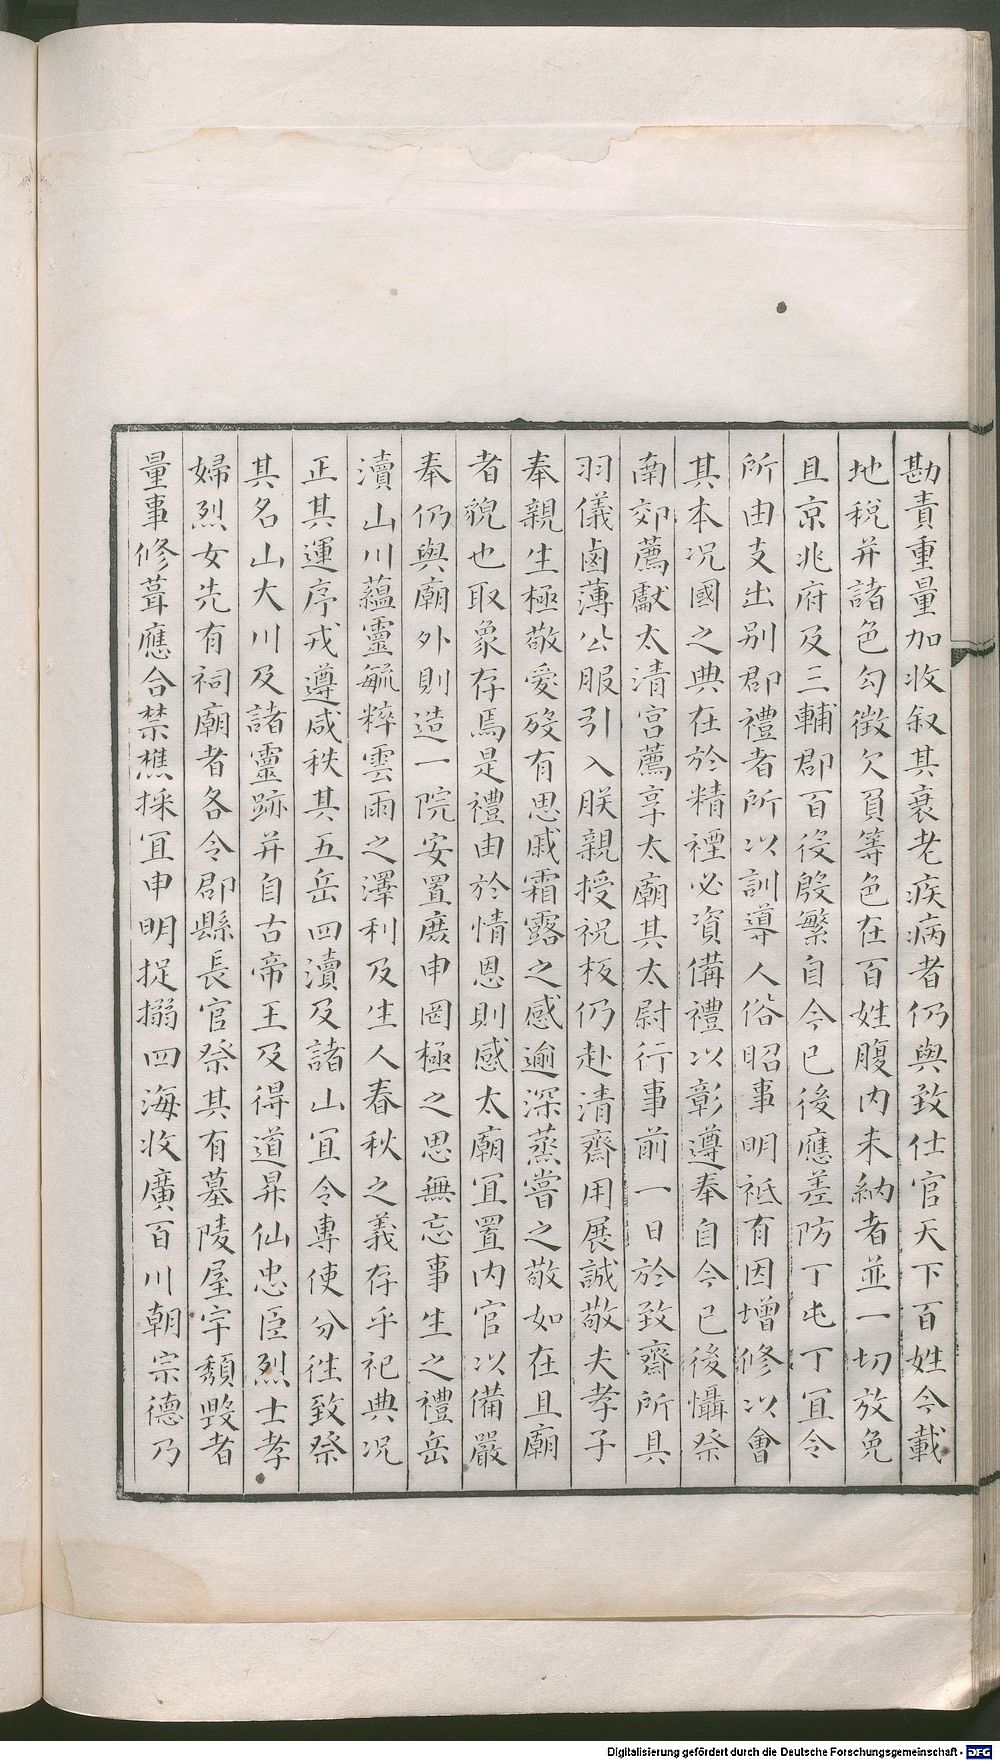 勘責重量加收叙其衰老疾病者仍與致仕官天下百姓今載
地稅并諸色勾徵欠負等色在百姓腹内未納者並一切放免
且京兆府及三輔郡百役殷繁自今已後應差防丁屯丁宜令
所由支出别郡禮者所以訓導人俗昭事明祗有因增修以會
其本况國之典在於精禋必資備禮以彰遵奉自今已後懾祭
南郊薦獻太清宫薦享太廟其太尉行事前一日於致齋所具
羽儀鹵薄公服引入朕親授祝板仍赴清齋用展誠敬夫孝子
奉親生極敬愛殁有思戚霜露之感逾深蒸嘗之敬如在且廟
者貌也取象存焉是禮由於情恩則感太廟宜置内官以備嚴
奉仍與廟外則造一院安置庶申罔極之思無忘事生之禮岳
瀆山川蘊靈毓粹雲雨之澤利及生人春秋之義存乎祀典况
正其運序戎遵咸秩其五岳四瀆及諸山宜令專使分徃致祭
其名山大川及諸靈跡并自古帝王及得道昇仙忠臣烈士孝
婦烈女先有祠廟者各令郡縣長官祭其有墓陵屋宇頹毁者
量事修葺應合禁樵採宜申明捉搦四海收廣百川朝宗德乃
Digitalisierung gefördert durch die Deutsche Forschungsgemeinschaft - DFG